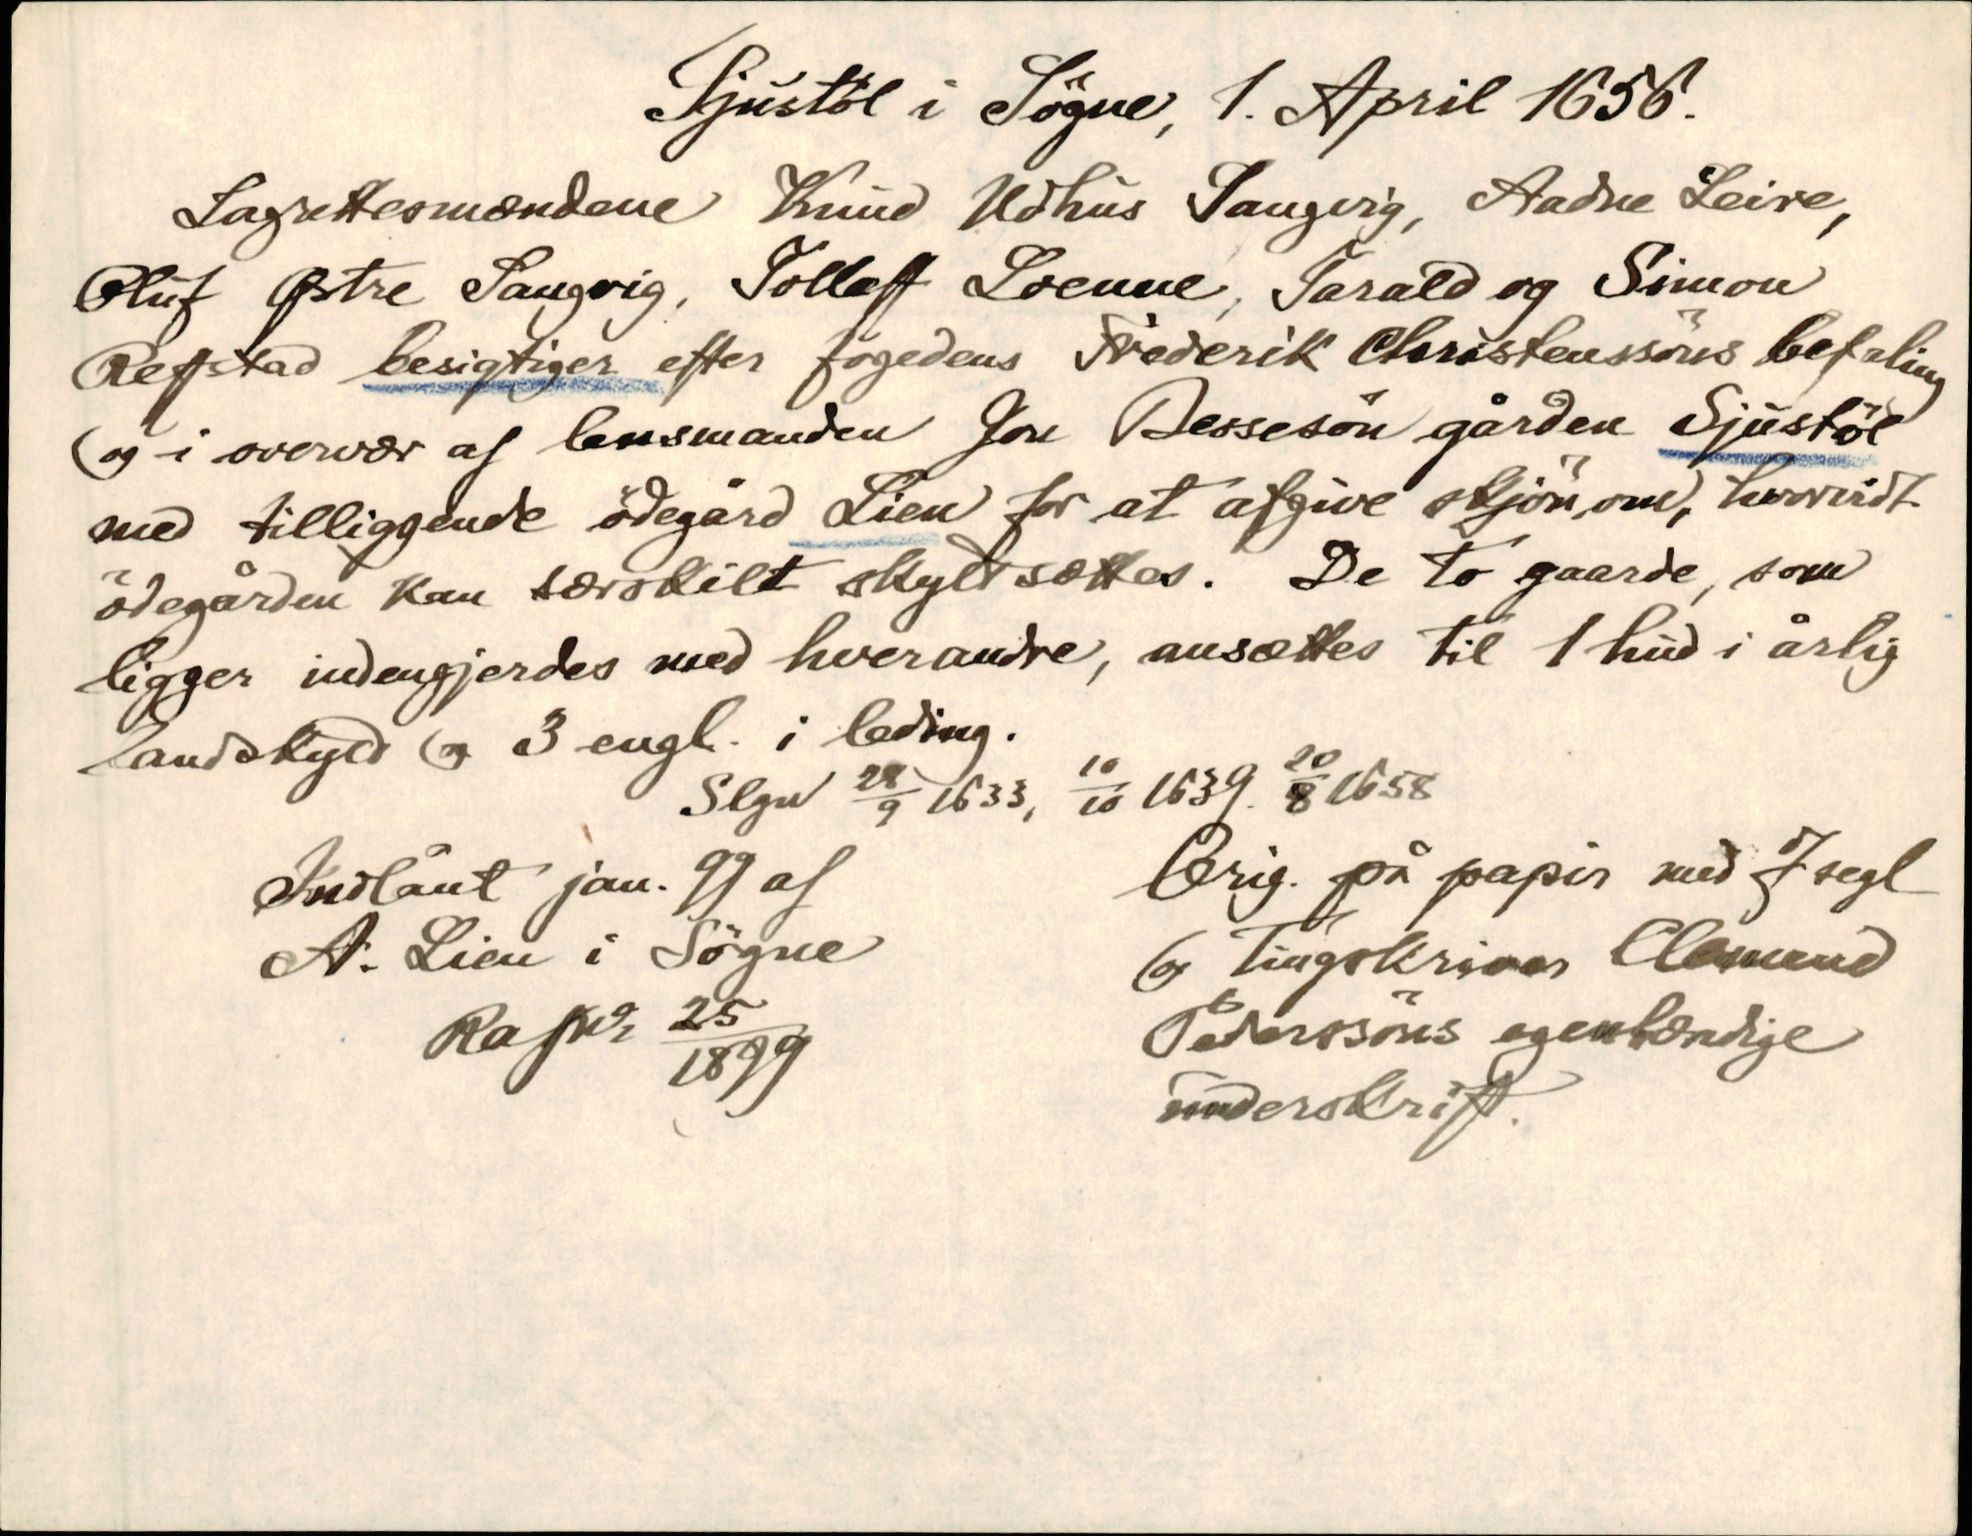 Sjustöl i Sögne, 1. April 1656.
Lagrettesmændene Knud Udhus Sangvig, Aadne Leire,
Oluf Østre Sangvig, Tolleff Loenne, Tarald og Simon
Reffstad besigtiger efter fogedens Frederik Christenssöns befaling
og i overvær af lensmanden Jon Dessesön gården Sjustöl
med tilliggende ödegård Lien for at afgive skjön om, hvorvidt
ödegården kan særskilt skyldsættes. De to gaarde, som
ligger indengjerdes med hverandre, ansættes til 1 hud i årlig
landskyld og 3 engl. i leding.
Slgn 28/9 1633, 10/10 1639. 20/8 1658
Indlånt jan. 99 af
A. Lien i Sögne
Ra 25/1899
Orig. på papir med 7 segl
og Tingskriver Clemend
Pederssöns egenhændige
underskrift.